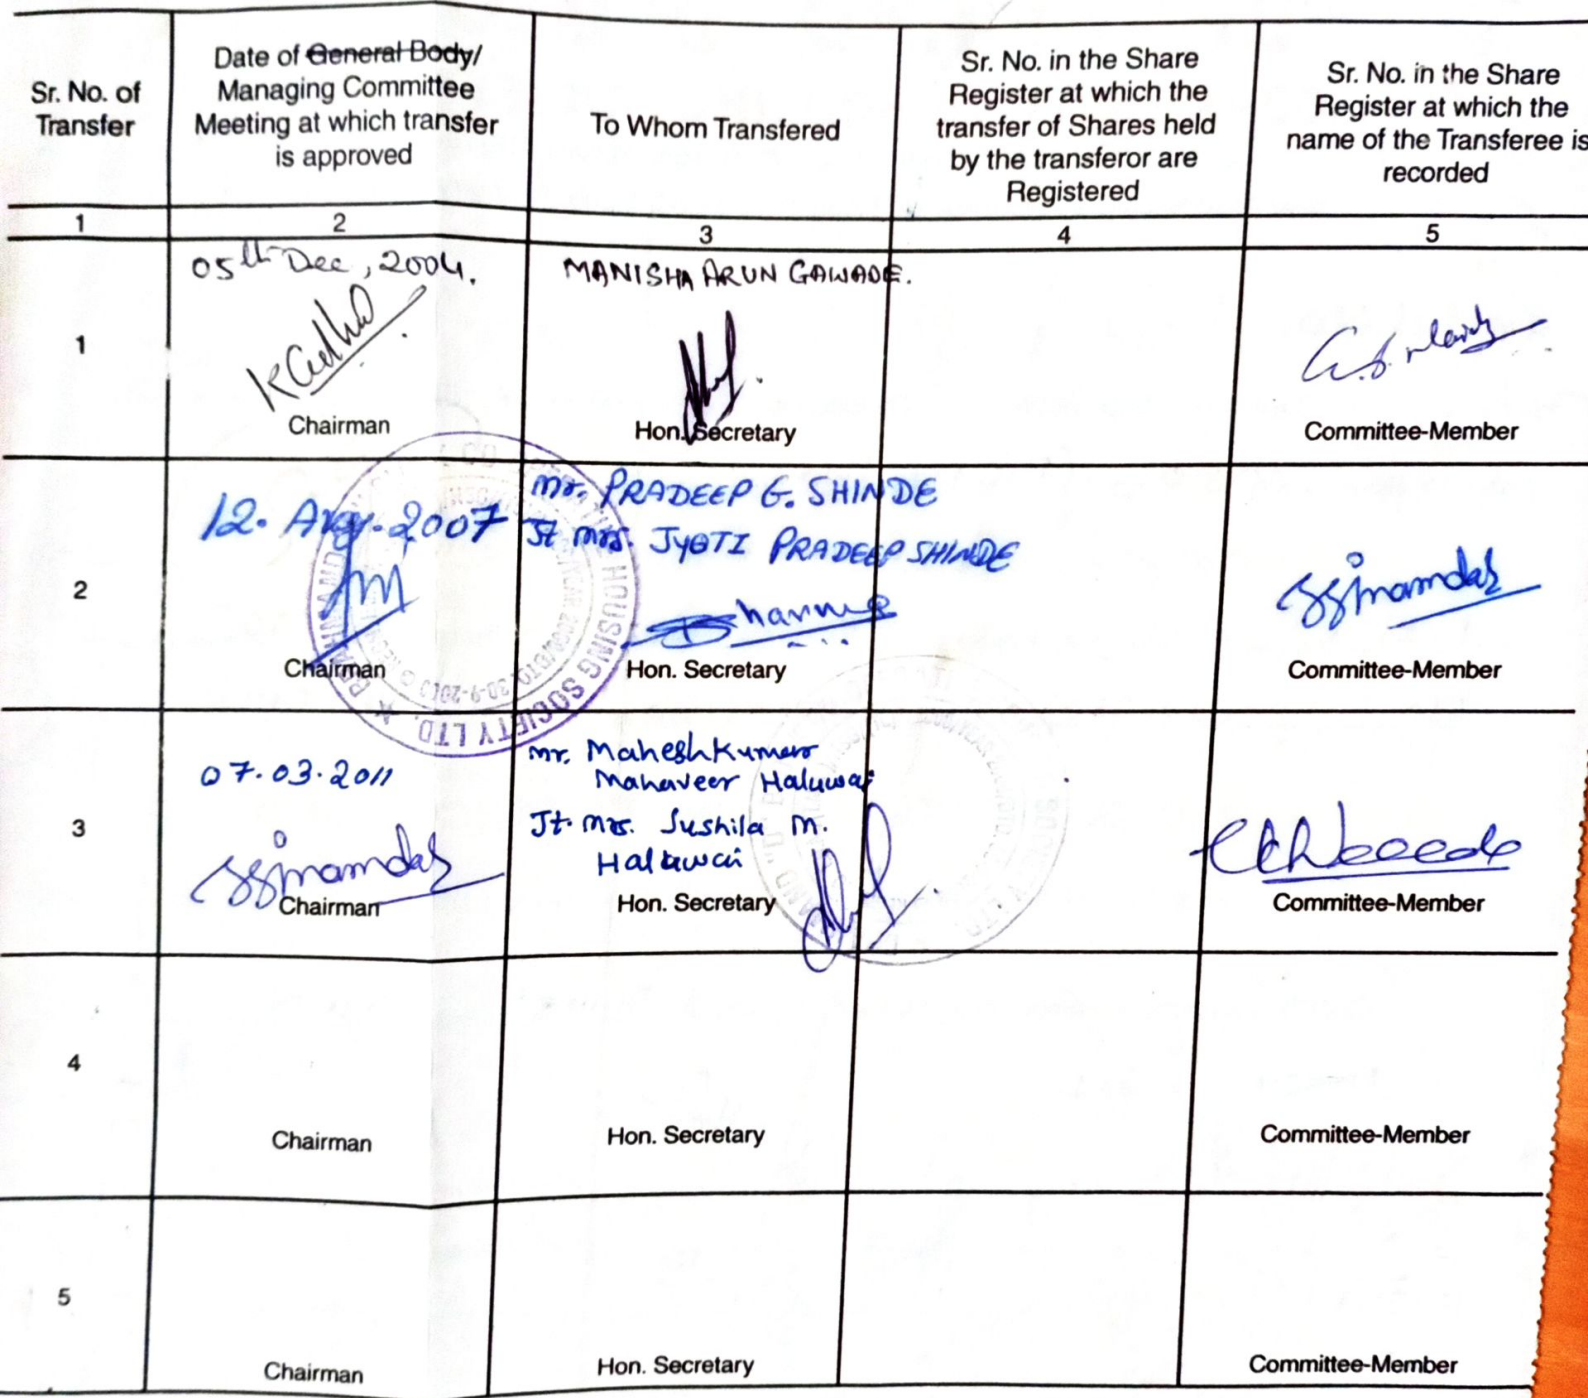 Sr. No. of
Transfer
Date of General Body/
Managing Committee
Meeting at which transfer
is approved
To Whom Transfered
Sr. No. in the Share
Register at which the
transfer of Shares held
by the transferor are
Registered
Sr. No. in the Share
Register at which the
name of the Transferee is
recorded
1 2 3 4 5
1
05th Dec, 2004.
Chairman
MANISHA ARUN GAWADE.
Hon. Secretary
Committee-Member
2
12. Aug. 2007
Chairman
Mr. PRADEEP G. SHINDE
Jt Mrs. JYOTI PRADEEP SHINDE
Hon. Secretary
ssinamdar
Committee-Member
HOUSING SOCIETY LTD.
3
07.03.2011
ssinamdar
Chairman
Mr. Maheshkumar
Mahaveer Haluwai
Jt. Mrs. Sushila M.
Haluwai
Hon. Secretary
Committee-Member
4
Chairman
Hon. Secretary
Committee-Member
5
Chairman
Hon. Secretary
Committee-Member